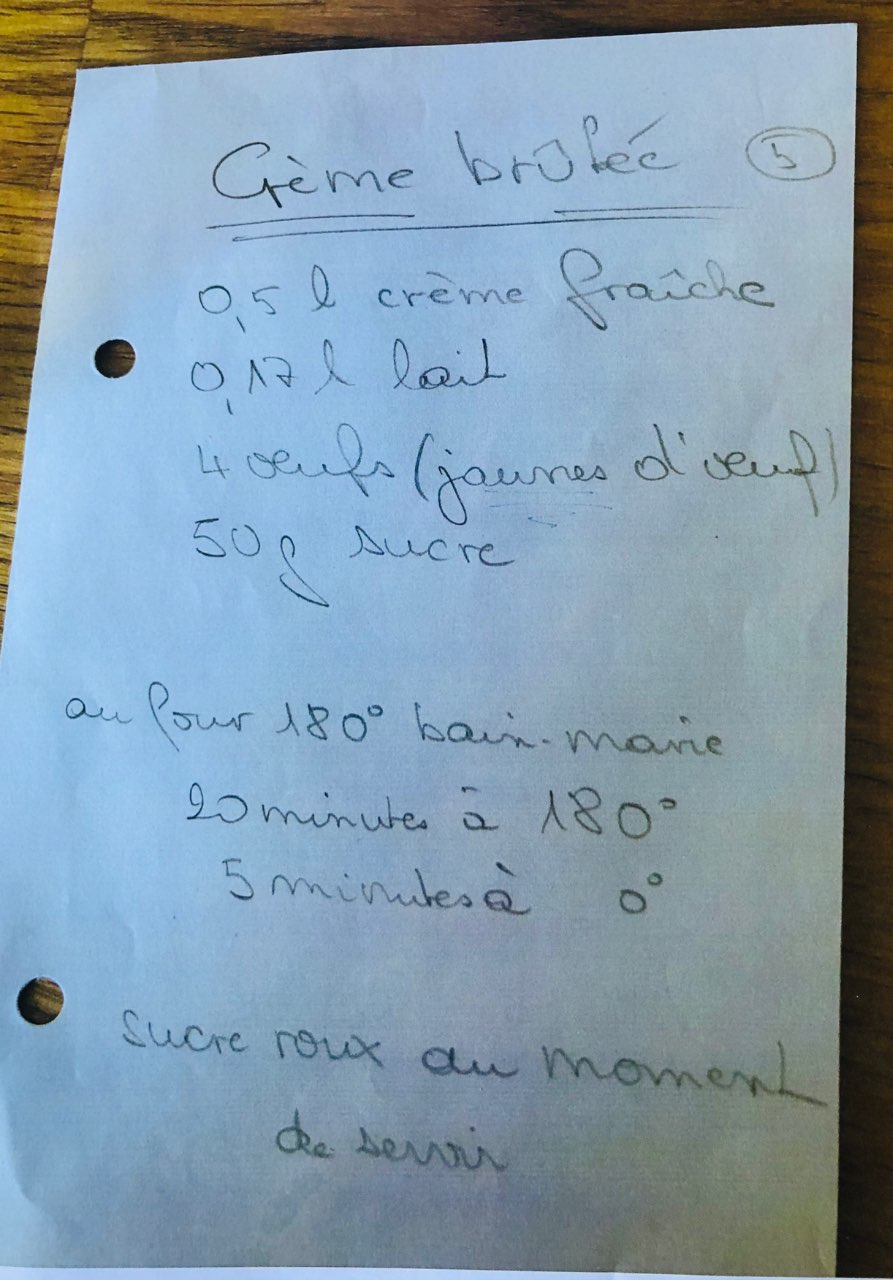 Crème brûlée 5
0,5 l crème fraîche
0,17 l lait
4 oeufs (jaunes d'oeuf)
50 g sucre
au four 180° bain-marie
20 minutes à 180°
5 minutes à 0°
sucre roux au moment
de servir